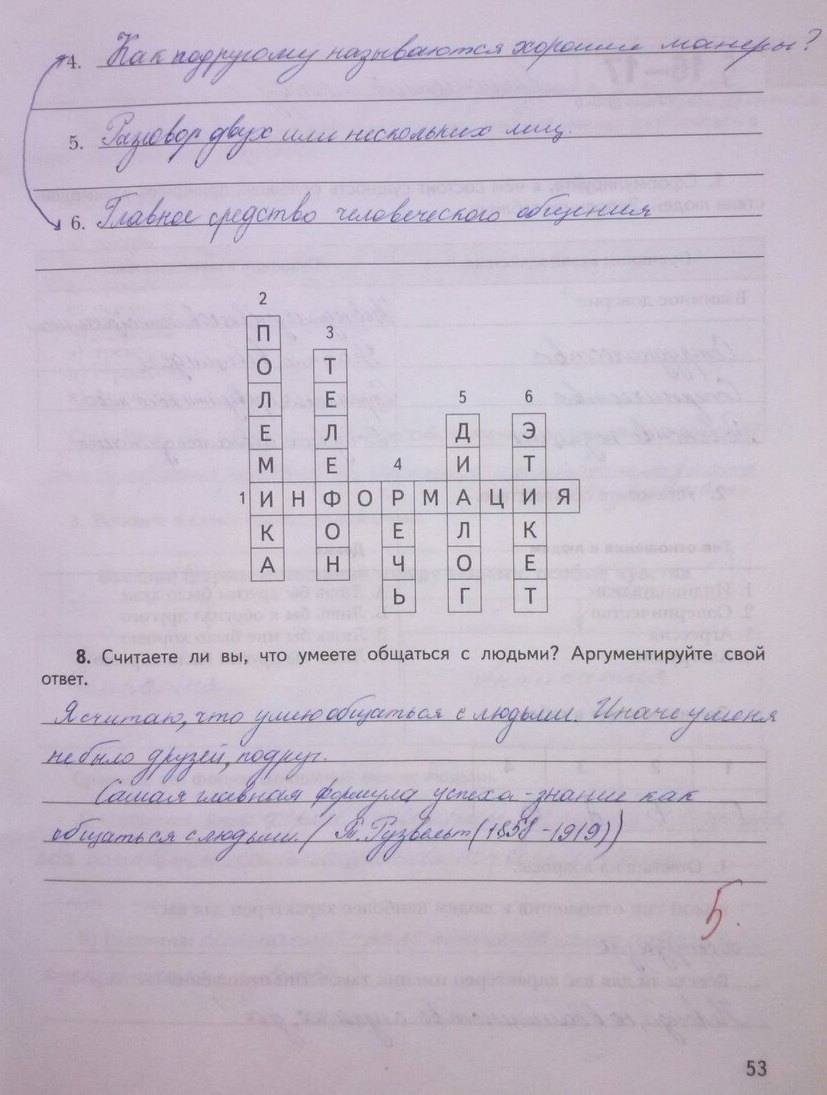 4. Как подругому называются хорошие манеры?
5. Разговор двух или нескольких лиц.
6. Главное средство человеческого общения
2
П
О
Л
Е
М
И
К
А
3
Т
Е
Л
Е
Ф
О
Н
4
Р
Е
Ч
Ь
5
Д
И
А
Л
О
Г
6
Э
Т
И
К
Е
Т
1 И Н Ф О Р М А Ц И Я
8. Считаете ли вы, что умеете общаться с людьми? Аргументируйте свой
ответ.
Я считаю, что умею общаться с людьми. Иначе у меня
не было друзей, подруг.
Самая главная формула успеха - знание как
общаться с людьми. (Т. Рузвельт (1858-1919))
5.
53